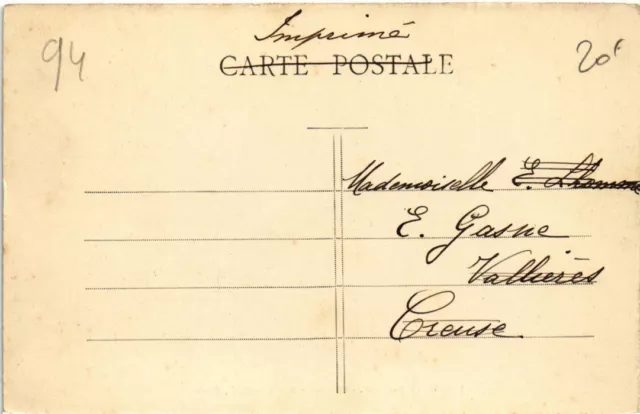 Imprimé
94
20f
CARTE POSTALE
Mademoiselle E.
E. Gasne
Vallières
Creuse